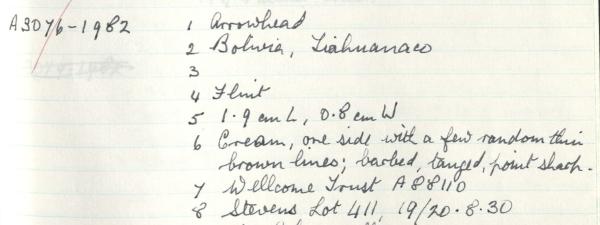 A3076-1982 1 Arrowhead
2 Bolivia, Tiahuanaco
3
4 Flint
5 1.9 cm L, 0.8 cm W
6 Cream, one side with a few random thin
brown lines; barbed, tanged, point sharp.
7 Wellcome Trust A 88110
8 Stevens Lot 411, 19/20.8.30